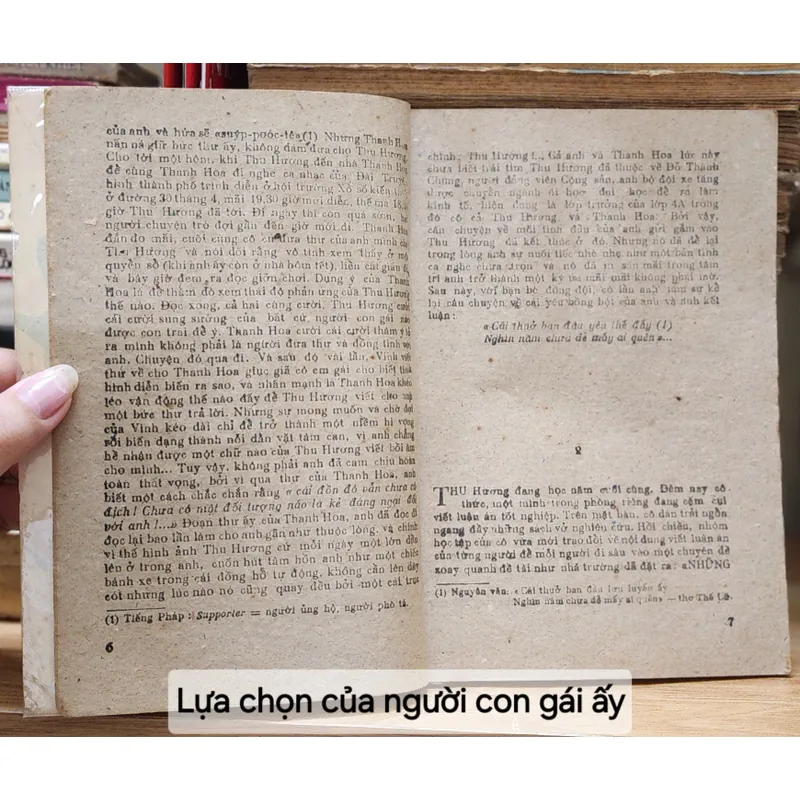 của anh và hứa sẽ «suýp-poóc-tê»(1) Nhưng Thanh Hoa
nấn ná giữ bức thư ấy, không dám đưa cho Thu Hương.
Cho tới một hôm, khi Thu Hương đến nhà Thanh Hoa
để cùng Thanh Hoa đi nghe ca nhạc của Đài Truyền
hình thành phố trình diễn ở hội trường Xổ số kiến thiết
ở đường 30 tháng 4, mãi 19,30 giờ mới diễn, thế mà 18
giờ Thu Hương đã tới. Đi ngay thì còn quá sớm, hai
người chuyện trò đợi gần đến giờ mới đi. Thanh Hoa
đắn đo mãi, cuối cùng cô đưa lá thư của anh mình cho
Thu Hương và nói dối rằng vô tình xem thấy ở một
quyển sổ (khi anh ấy còn ở nhà hôm tết), liền cất giấu đi
và bây giờ đem ra đọc giỡn chơi. Dụng ý của Thanh
Hoa là để thăm dò xem thái độ phản ứng của Thu Hương
thế nào. Đọc xong, cả hai cùng cười, Thu Hương cười
cái cười sung sướng của bất cứ người con gái nào
được con trai để ý. Thanh Hoa cười cái cười thầm tỏ
ra mình không phải là người đưa thư và đồng tình với
anh. Chuyện đó qua đi. Và sau đó vài lần, Vinh viết
thư về cho Thanh Hoa giục giã cô em gái cho biết tình
hình diễn biến ra sao, và nhấn mạnh là Thanh Hoa khéo
léo vận động thế nào đấy để Thu Hương viết cho anh
một bức thư trả lời. Nhưng sự mong muốn và chờ đợi
của Vinh kéo dài chỉ để trở thành một niềm hi vọng
rồi biến dạng thành nỗi dằn vặt tâm can, vì anh chẳng
hề nhận được một chữ nào của Thu Hương viết bởi âm
cho mình... Tuy vậy, không phải anh đã cam chịu hoàn
toàn thất vọng, bởi vì qua thư của Thanh Hoa, anh
biết một cách chắc chắn rằng « cái đồn đó vẫn chưa có
địch ! Chưa có một đối tượng nào là kẻ đáng ngại đối
với anh !...» Đoạn thư ấy của Thanh Hoa, anh đã đọc đi
đọc lại bao lần làm cho anh gần như thuộc lòng, và chính
vì thế hình ảnh Thu Hương cứ mỗi ngày một lớn dần
lên ở trong anh, cuốn hút tâm hồn anh như một chiếc
bánh xe trong cái đồng hồ tự động, không cần lên dây
cót nhưng lúc nào nó cũng quay đều bởi một cái trục
(1) Tiếng Pháp : Supporter = người ủng hộ, người phò tá.
6
chính: Thu Hương !... Cả anh và Thanh Hoa lúc này
chưa biết trái tim Thu Hương đã thuộc về Đỗ Thành
Chung, người đảng viên Cộng sản, anh bộ đội xe tăng
được chuyển ngành đi học đại học để ra làm
kinh tế, hiện đang là lớp trưởng của lớp 4A trong
đó có cả Thu Hương và Thanh Hoa. Bởi vậy,
câu chuyện về mối tình đầu của anh gửi gắm vào
Thu Hương đã kết thúc ở đó. Nhưng nó đã để lại
trong lòng anh sự nuối tiếc nhè nhẹ như một bản tình
ca nghe chưa trọn và nó đã in sâu mãi trong tâm
trí anh trở thành một kỉ niệm mãi mãi không phai mờ.
Sau này, với bạn bè đồng đội, có lần anh tâm sự kể
lại câu chuyện về cái yêu bồng bột của anh và anh kết
luận :
« Cái thuở ban đầu yêu thế đấy (1)
Nghìn năm chưa dễ mấy ai quên »...
2
THU Hương đang học năm cuối cùng. Đêm nay cô
thức, một mình trong phòng riêng đang cặm cụi
viết luận án tốt nghiệp. Trên mặt bàn, cô dàn trải ngổn
ngang đầy những sách vở nghiên cứu. Hồi chiều, nhóm
học tập của cô vừa mới trao đổi về nội dung viết luận án
của từng người để mỗi người đi sâu vào một chuyên đề
xoay quanh đề tài như nhà trường đã đặt ra: «NHỮNG
(1) Nguyên văn: «Cái thuở ban đầu lưu luyến ấy
Nghìn năm chưa dễ mấy ai quên» — thơ Thế Lữ.
7
Lựa chọn của người con gái ấy